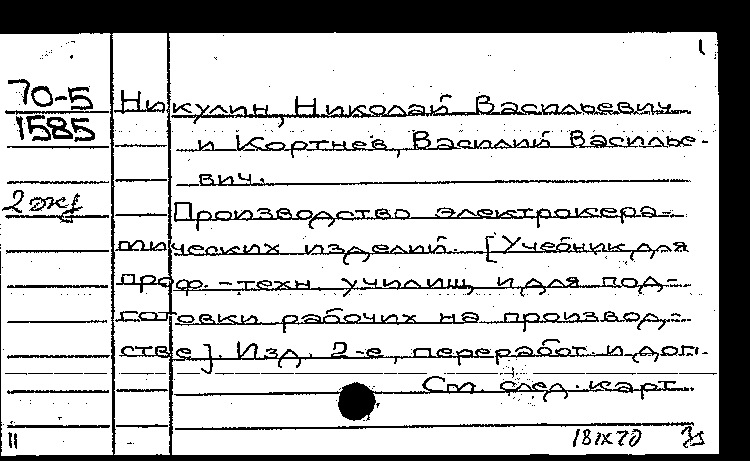 1
70-5
1585
2 экз
Никулин, Николай Васильевич
и Кортнев, Василий Василье-
вич.
Производство электрокера-
мических изделий. [Учебник для
проф.-техн. училищ и для под-
готовки рабочих на производ-
стве]. Изд. 2-е, переработ. и доп.
См. след. карт.
11
18 IX 70